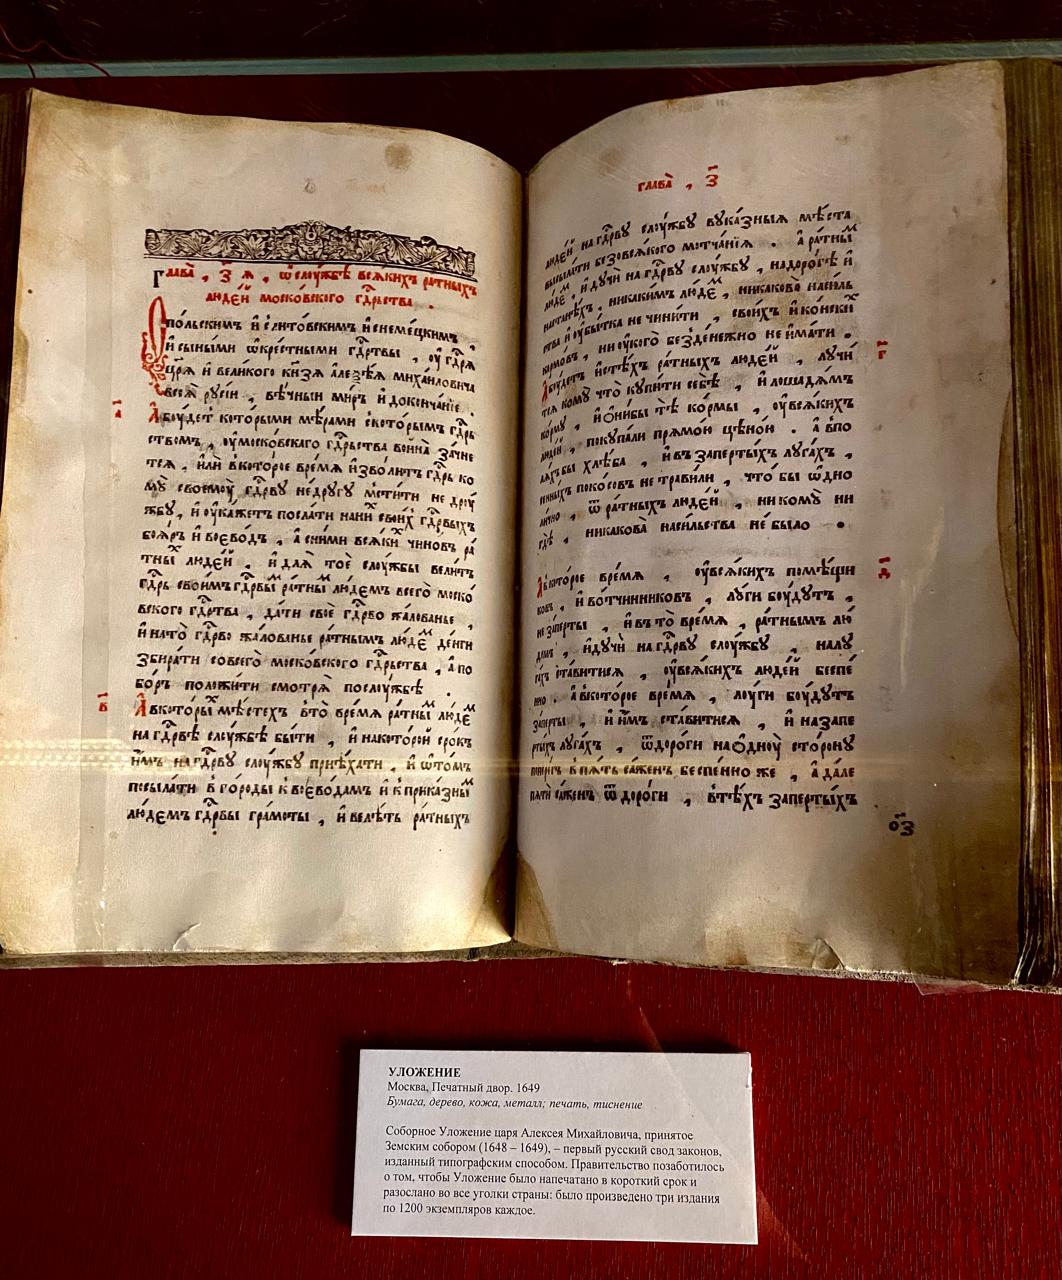 Глава̀, з҃ я, ѡ҆ слꙋ́жбѣ всѧ́кихъ ра́тныхъ
люде́й моско́вского гдⷭ҇рьства.
Споль́скимъ и҆ слито́вскимъ и҆ снеме́цкимъ,
и҆ сыны́ми ѡ҆кре́стными гдⷭ҇ртвы, оу҆ гдⷭ҇рѧ
цр҃ѧ̀ и҆ вели́кого кнѧ́зѧ а҆леѯѣ́ѧ миха́иловича
всеѧ̀ рꙋсі́и, вѣ́чныи ми́ръ и҆ докончанїе.
а҃
А҆ бꙋ́детъ кото́рыми мѣ́рами ското́рымъ гдⷭ҇рь
ство́мъ, оу҆моско́вскаго гдⷭ҇рьства во́йна̀ зачне
тсѧ, и҆лѝ вкото́рое вре́мѧ и҆зво́литъ гдⷭ҇рь ко
мꙋ̀ своемꙋ̀ гдⷭ҇рвꙋ не́дрꙋгꙋ мсти́ти недрꙋ́
жбꙋ, и҆ оу҆ка́жетъ посла́ти нани́ⷯ свои́ⷯ гдⷭ҇рвыхъ
боѧ́ръ и҆ воево́дъ, а҆ сни́ми всѧ́киⷯ чино́въ ра́
тныⷯ люде́й, и҆ длѧ̀ тоѐ слꙋ́жбы вели́тъ
гдⷭ҇рь свои́мъ гдⷭ҇рвыⷨ ра́тныⷨ лю́демъ всего̀ моско́
вского гдⷭ҇ртва, да́ти своѐ гдⷭ҇рво жа́лованье,
и҆ нато̀ гдⷭ҇рво жа́лованье ра́тнымъ лю́деⷨ де́нги
збира́ти совсего̀ моско́вского гдⷭ҇рьства, а҆ по
бо́ръ положи́ти смотрѧ̀ послꙋ́жбѣ.
в҃
А҆ вкото́рыⷯ мѣ́стехъ вто̀ вре́мѧ ра́тныⷨ лю́деⷨ
на гдⷭ҇рвѣ слꙋ́жбѣ бы́ти, и҆ накото́рой сро́къ
и҆̀мъ на гдⷭ҇рвꙋ слꙋ́жбꙋ прїѣ́хати, и҆ ѡ҆то́мъ
посыла́ти в го́роды к воево́дамъ и҆ к прика́зныⷨ
лю́демъ гдⷭ҇рвы гра́моты, и҆ велѣ́ть ра́тныхъ
глава̀, з҃
люде́й на гдⷭ҇рвꙋ слꙋ́жбꙋ вꙋка́зныѧ мѣ́ста
высыла́ти безовсѧ́кого мотча́нїѧ. а҆ ра́тныⷨ
лю́деⷨ, и҆дꙋ́чи на гдⷭ҇рвꙋ слꙋ́жбꙋ, надоро́гѣ и҆
наста́нѣхъ, никаки́мъ лю́деⷨ, никако́во наси́ль
ства и҆ оу҆бы́тка не чини́ти, свои́хъ и҆ ко́нскиⷯ
кормо́въ, ни оу҆кого̀ безде́нежно не и҆ма́ти.
г҃
А҆ бꙋ́детъ и҆стѣ́хъ ра́тныхъ люде́й, лꙋчи́
тсѧ комꙋ̀ что̀ кꙋпи́ти себѣ̀, и҆ лошадѧ́мъ
ко́рмꙋ, и҆ ѻ҆ни́бы тѣ̀ ко́рмы, оу҆ всѧ́кихъ
люде́й, покꙋпа́ли прѧмо́ю цѣно́ю. а҆ впо
лѧ́хъ бы хлѣ́ба, и҆ въ запе́ртыхъ лꙋга́хъ,
сѣ́нныхъ поко́совъ не трави́ли, что́бы ѡ҆дно
ли́чно, ѿ ра́тныхъ люде́й, никомꙋ̀ ни
гдѣ̀, никако́ва наси́льства не́было
д҃
А҆ вкото́рое вре́мѧ, оу҆всѧ́кихъ помѣ́щи
ковъ, и҆ во́тчинниковъ, лꙋги бꙋ́дꙋтъ,
не за́перты, и҆ въ то̀ вре́мѧ, ра́тнымъ лю
демъ, и҆дꙋчѝ на гдⷭ҇рвꙋ слꙋ́жбꙋ, на лꙋ
га́хъ ста́витисѧ, оу҆всѧ́кихъ люде́й беспе́
нно. а҆ вкото́рое вре́мѧ, лꙋги бꙋ́дꙋтъ
за́перты, и҆ и҆̀мъ ста́витисѧ, и҆ на запе
ртыхъ лꙋга́хъ, ѿ доро́ги на ѻ҆днꙋ̀ сто́ронꙋ
попере́гъ в пѧ́ть са́женъ беспе́нно же, а҆ да́ле
пѧти́ са́женъ ѿ доро́ги, втѣ́хъ запе́ртыхъ
о҃з
УЛОЖЕНИЕ
Москва, Печатный двор. 1649
Бумага, дерево, кожа, металл; печать, тиснение
Соборное Уложение царя Алексея Михайловича, принятое
Земским собором (1648 – 1649), – первый русский свод законов,
изданный типографским способом. Правительство позаботилось
о том, чтобы Уложение было напечатано в короткий срок и
разослано во все уголки страны: было произведено три издания
по 1200 экземпляров каждое.